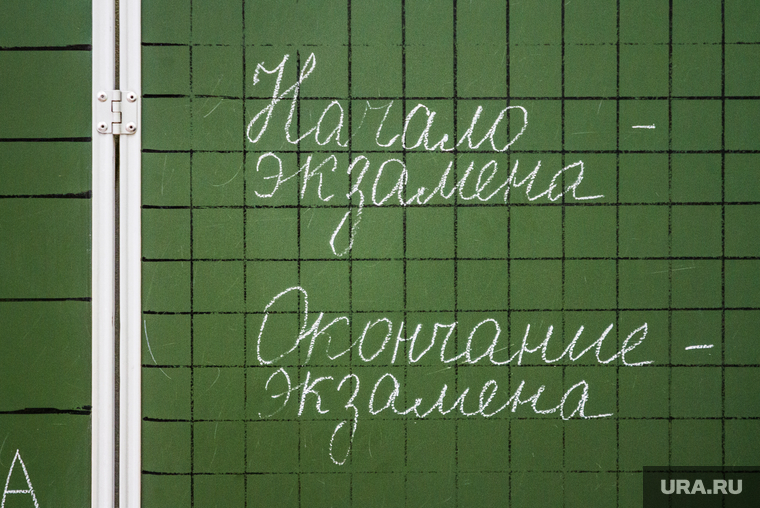 Начало -
экзамена
Окончание -
экзамена
А
URA.RU